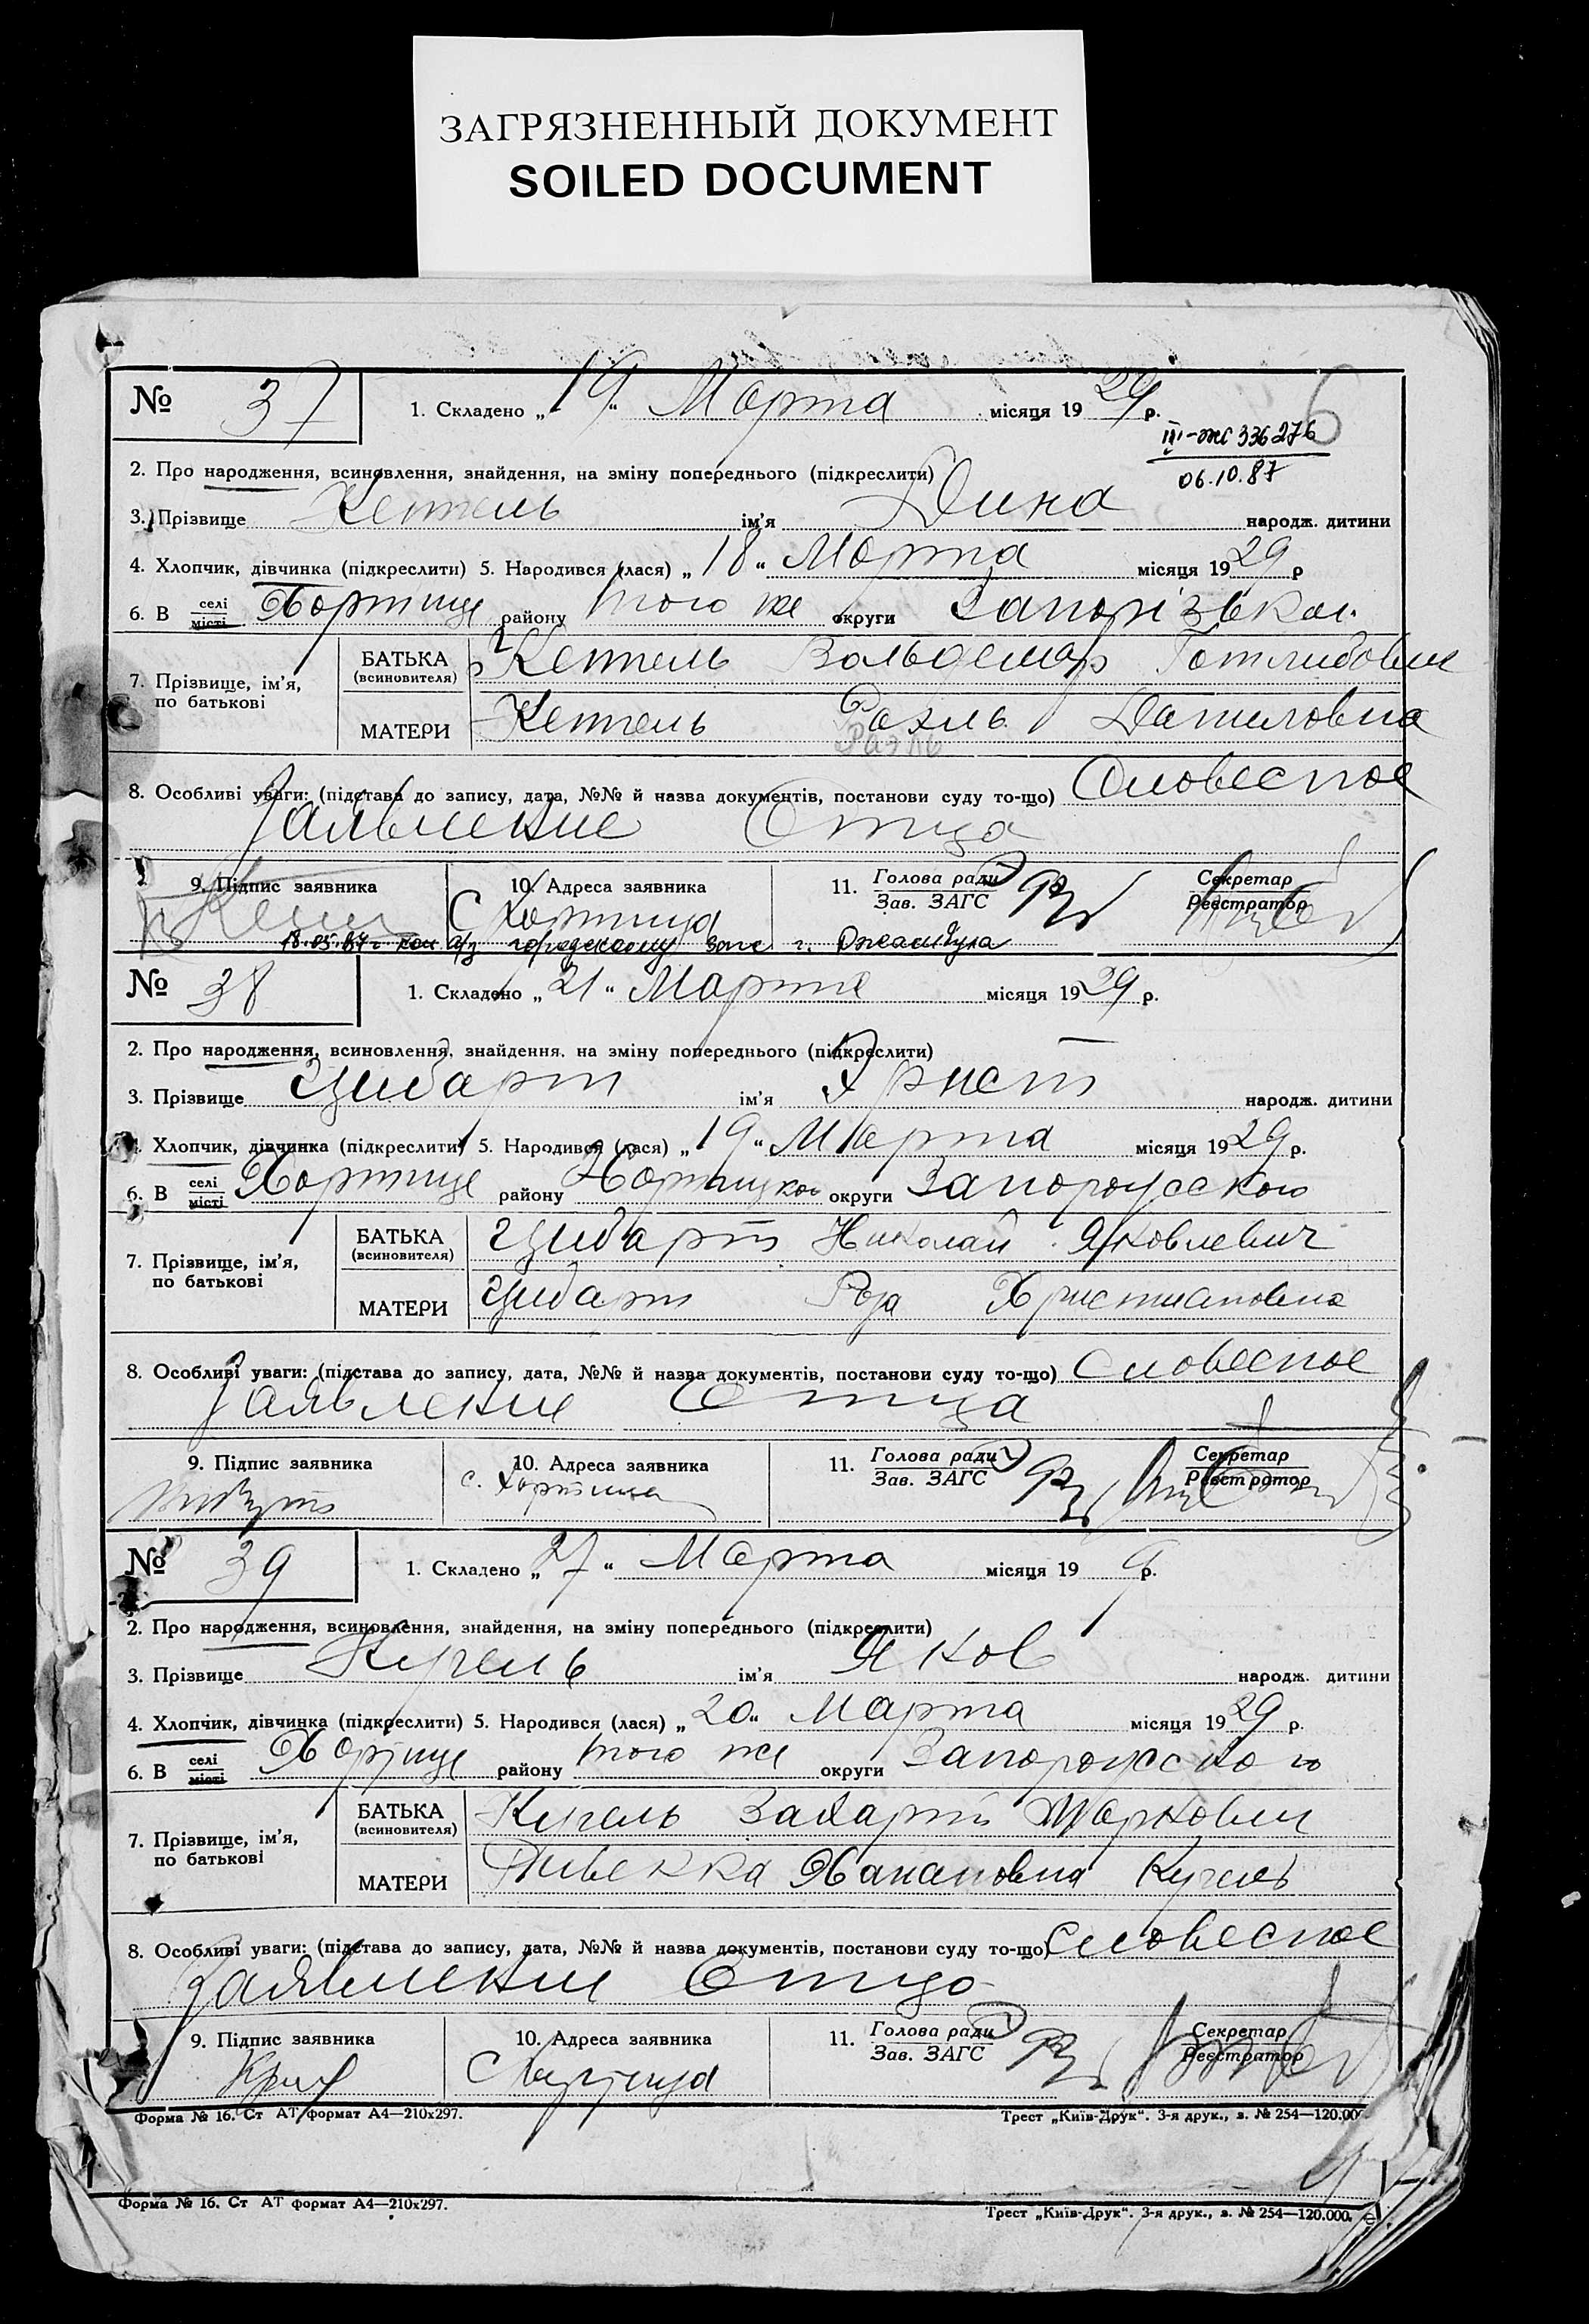 ЗАГРЯЗНЕННЫЙ ДОКУМЕНТ
SOILED DOCUMENT
№ 37 1. Складено „19“ Марта місяця 1929 р. 6
III-жс 336276
06.10.87
2. Про народження, всиновлення, знайдення, на зміну попереднього (підкреслити)
3. Прізвище Кеттель ім'я Дина народж. дитини
4. Хлопчик, дівчинка (підкреслити) 5. Народився (лася) „18“ Марта місяця 1929 р
6. В селі місті Хортице району того же округи Запорізькои
7. Прізвище, ім'я, по батькові
БАТЬКА (всиновителя) Кеттель Вольдемар Готлибович
МАТЕРИ Кеттель Рахль Даниловна
Раэль
8. Особливі уваги: (підстава до запису, дата, №№ й назва документів, постанови суду то-що) Словесное
Заявление Отца
9. Підпис заявника 10. Адреса заявника 11. Голова ради Зав. ЗАГС Секретар Реєстратор
С Хортица
18.05.87г. коп а/з городскому загс г. Джамбула
№ 38 1. Складено „21“ Марта місяця 1929 р.
2. Про народження, всиновлення, знайдення, на зміну попереднього (підкреслити)
3. Прізвище Цибарт ім'я Эрнст народж. дитини
4. Хлопчик, дівчинка (підкреслити) 5. Народився (лася) „19“ Марта місяця 1929 р.
6. В селі місті Хортице району Хортицкого округи Запорожского
7. Прізвище, ім'я, по батькові
БАТЬКА (всиновителя) Цибарт Николай Яковлевич
МАТЕРИ Цибарт Роза Христиановна
8. Особливі уваги: (підстава до запису, дата, №№ й назва документів, постанови суду то-що) Словесное
Заявление Отца
9. Підпис заявника 10. Адреса заявника 11. Голова ради Зав. ЗАГС Секретар Реєстратор
с. Хортица
№ 39 1. Складено „27“ Марта місяця 19 9 р.
2. Про народження, всиновлення, знайдення, на зміну попереднього (підкреслити)
3. Прізвище Кугель ім'я Яков народж. дитини
4. Хлопчик, дівчинка (підкреслити) 5. Народився (лася) „20“ Марта місяця 1929 р.
6. В селі місті Хортице району того же округи Запорожского
7. Прізвище, ім'я, по батькові
БАТЬКА (всиновителя) Кугель Захарий Маркович
МАТЕРИ Ривекка Ханановна Кугель
8. Особливі уваги: (підстава до запису, дата, №№ й назва документів, постанови суду то-що) Словесное
Заявление Отца
9. Підпис заявника 10. Адреса заявника 11. Голова ради Зав. ЗАГС Секретар Реєстратор
С Хортица
Форма № 16. Ст АТ формат А4—210х297. Трест „Київ-Друк“. 3-я друк., з. № 254—120.00
Форма № 16. Ст АТ формат А4—210х297. Трест „Київ-Друк“. 3-я друк., з. № 254—120.000.